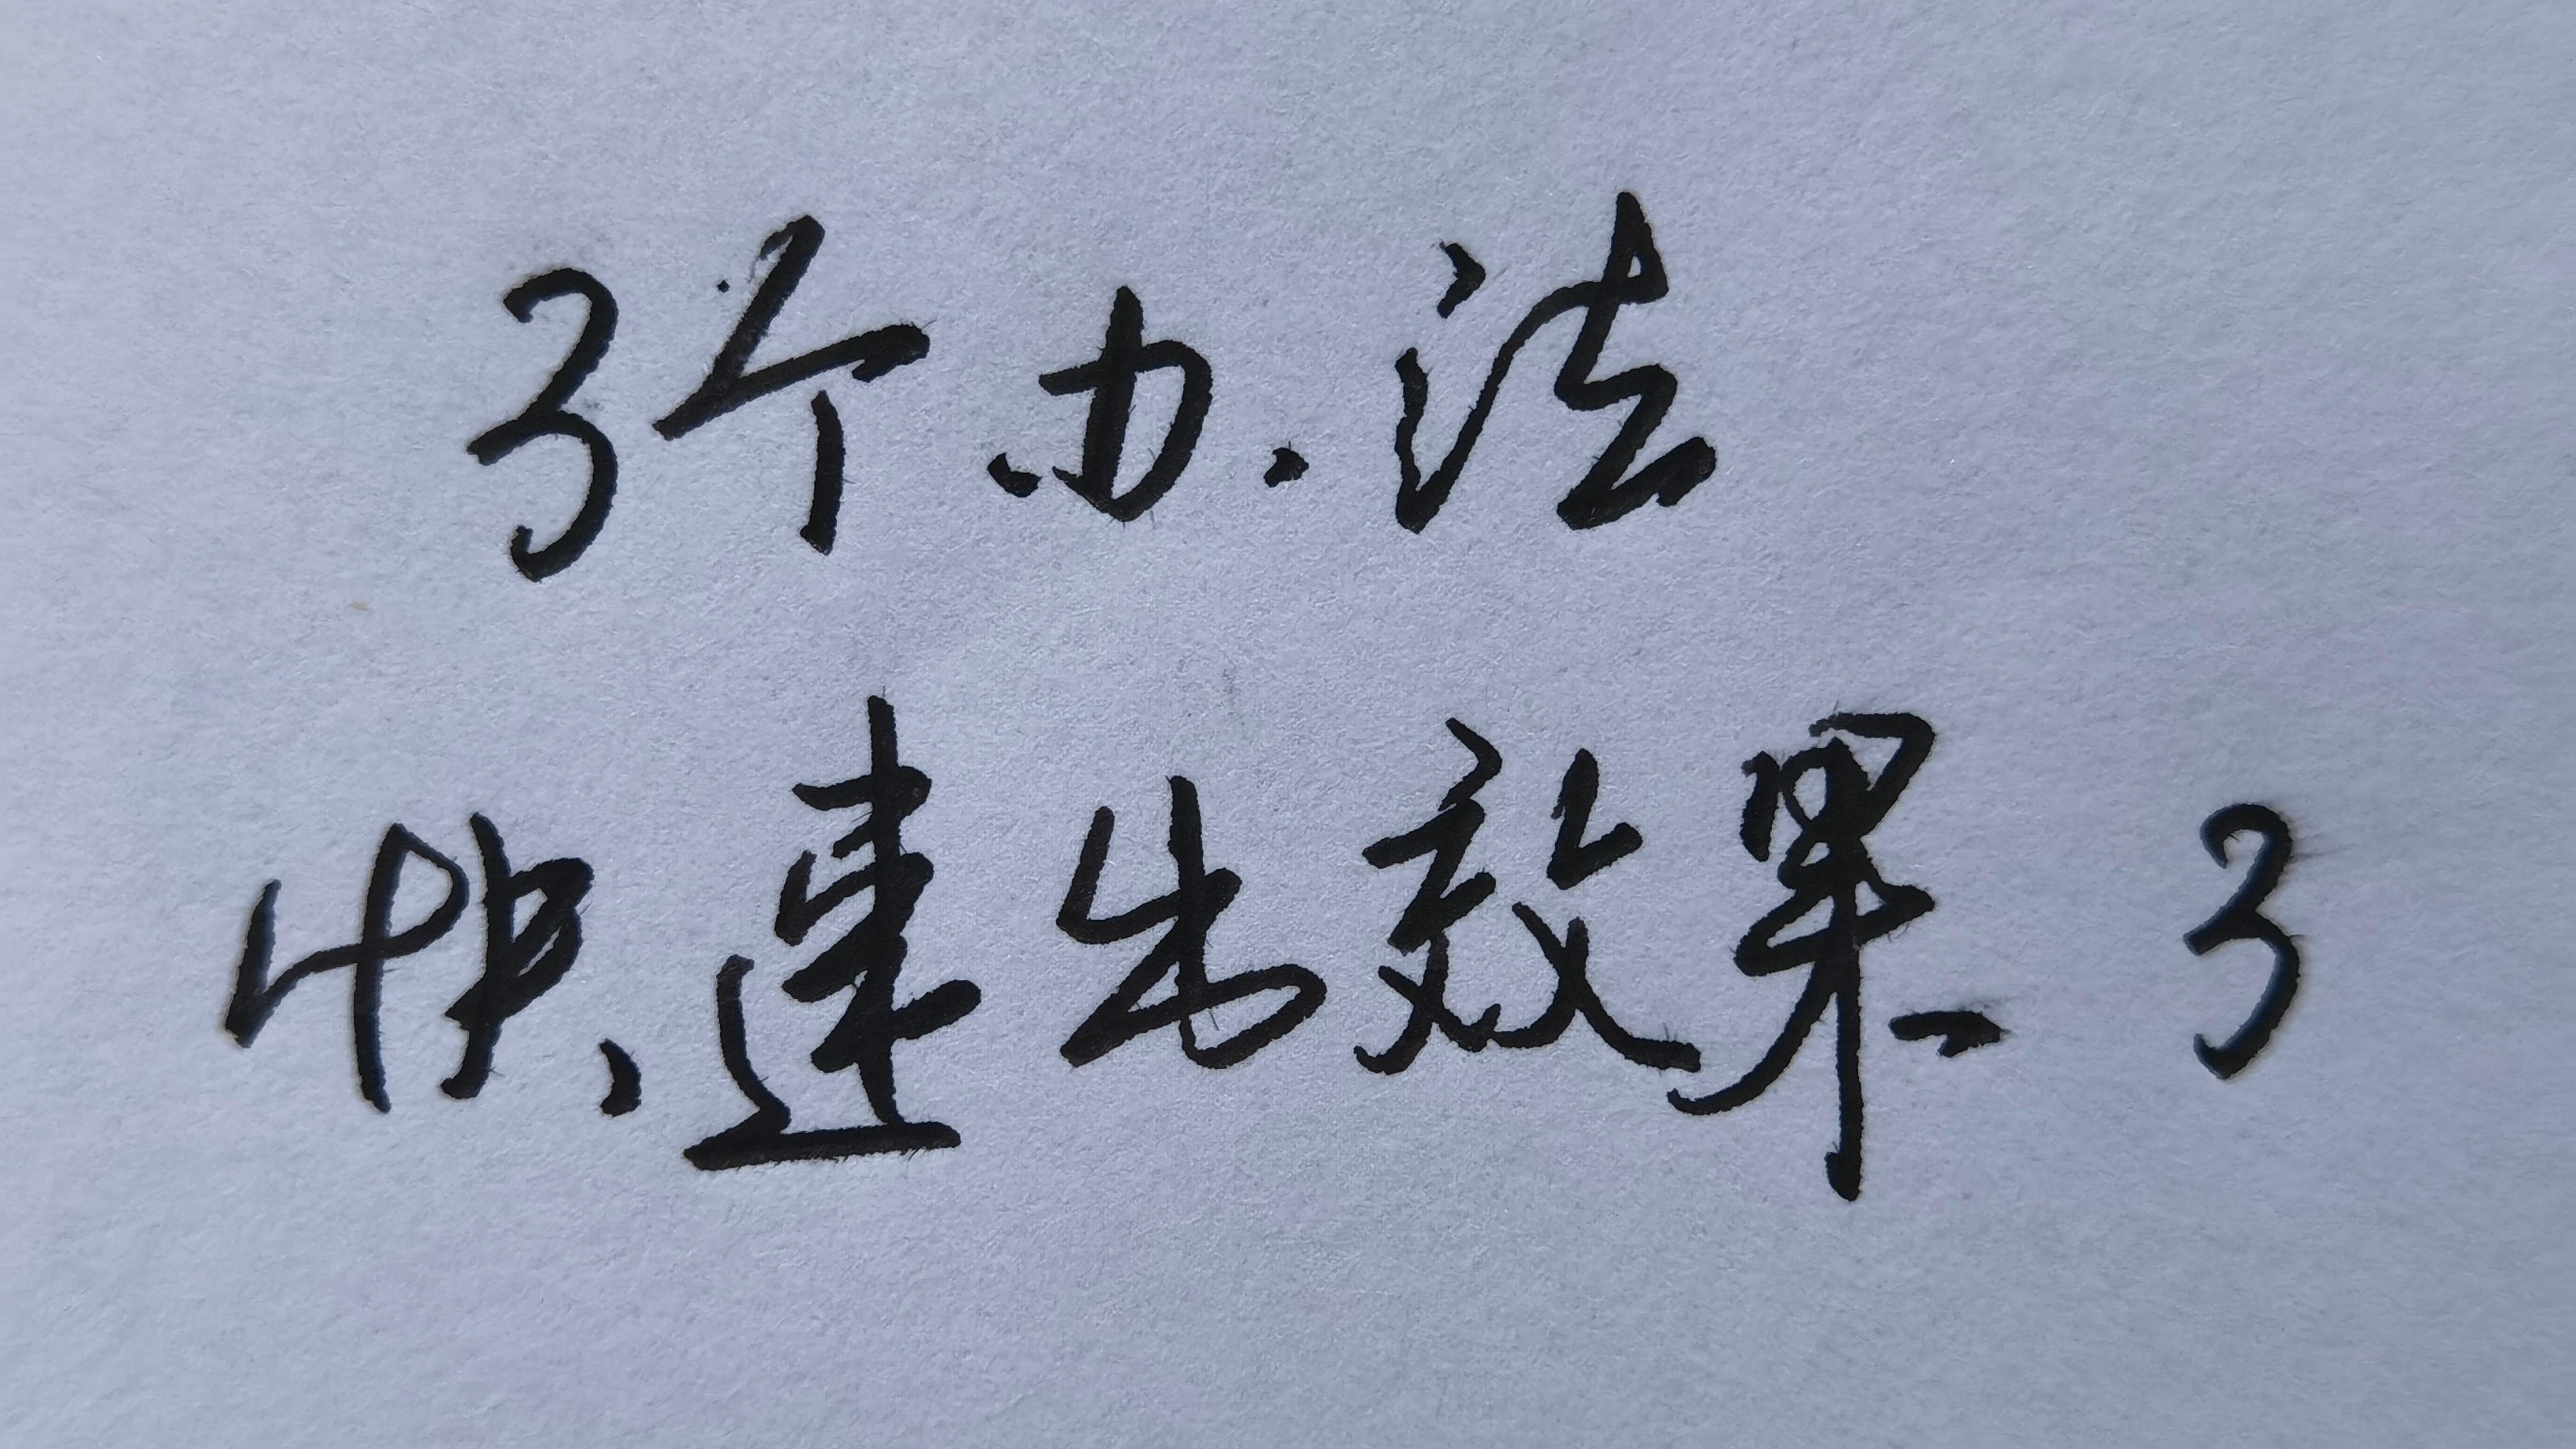 3个办法
快速出效果 3